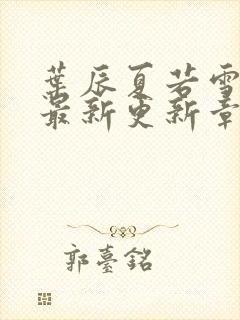 葉辰夏若雪
最新更新章
郭臺銘